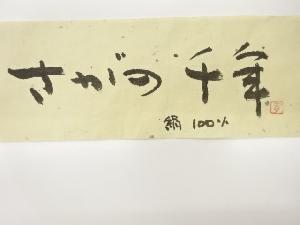 さがの 千年
絹 100%